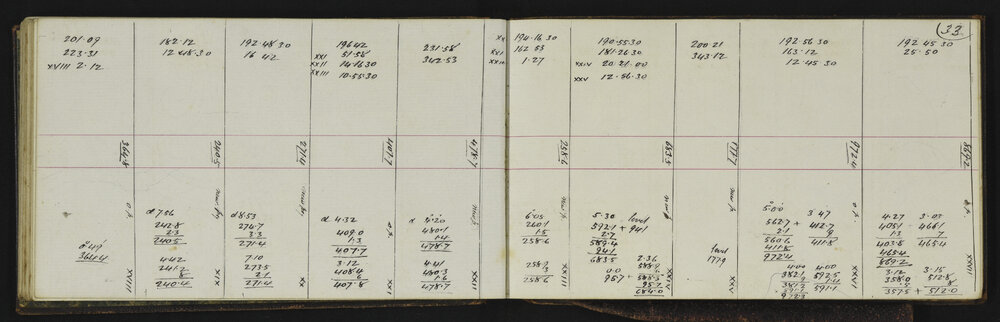 33
201.09
223.31
XVIII 2.12
182.12
12.48.30
192.48.30
16 42
196 42
XXI 51.58
XXII 14.16.30
XXIII 10.55.30
231.58
342.53
XX 194.16.30
XXI 162 53
1.27
190.55.30
181.26.30
XXIV 20.21.00
XXV 12.56.30
200.21
343.12
192.56.30
163.12
12.45.30
192 45 30
25.50
364.8
240.5
271.4
407.7
478.7
258.6
683.5
1779
972.4
869.2
364.4
XVIII
d 7.56
242.8
2.3
240.5
4.42
240.4
XIX
d 8.53
3.3
271.4
7.10
273.5
2.1
271.4
XX
d 4.32
409.0
1.3
407.7
3.12
408.4
6
407.8
XXI
4.20
480.1
1.4
478.7
4.41
480.3
1.6
478.7
XXII
6.05
260.1
1.5
258.6
258.9
3
258.6
XXIII
5.30 level
592.1 + 94.1
2.7
589.4
94.1
683.5
0.0
95.7
2.36
588.9
95.7
684.0
level
1779
5.00
562.7 +
2.1
560.6
411.8
972.4
3.47
412.7
9
411.8
4.00
382.1
4.00
592.5
1.4
591.1
972.3
XXVI
4.27
405.1
1.3
403.8
465.4
869.2
3.03
466.1
7
465.4
3.12
358.0
.5
357.5 +
3.15
512.8
8
512.0
XXVII